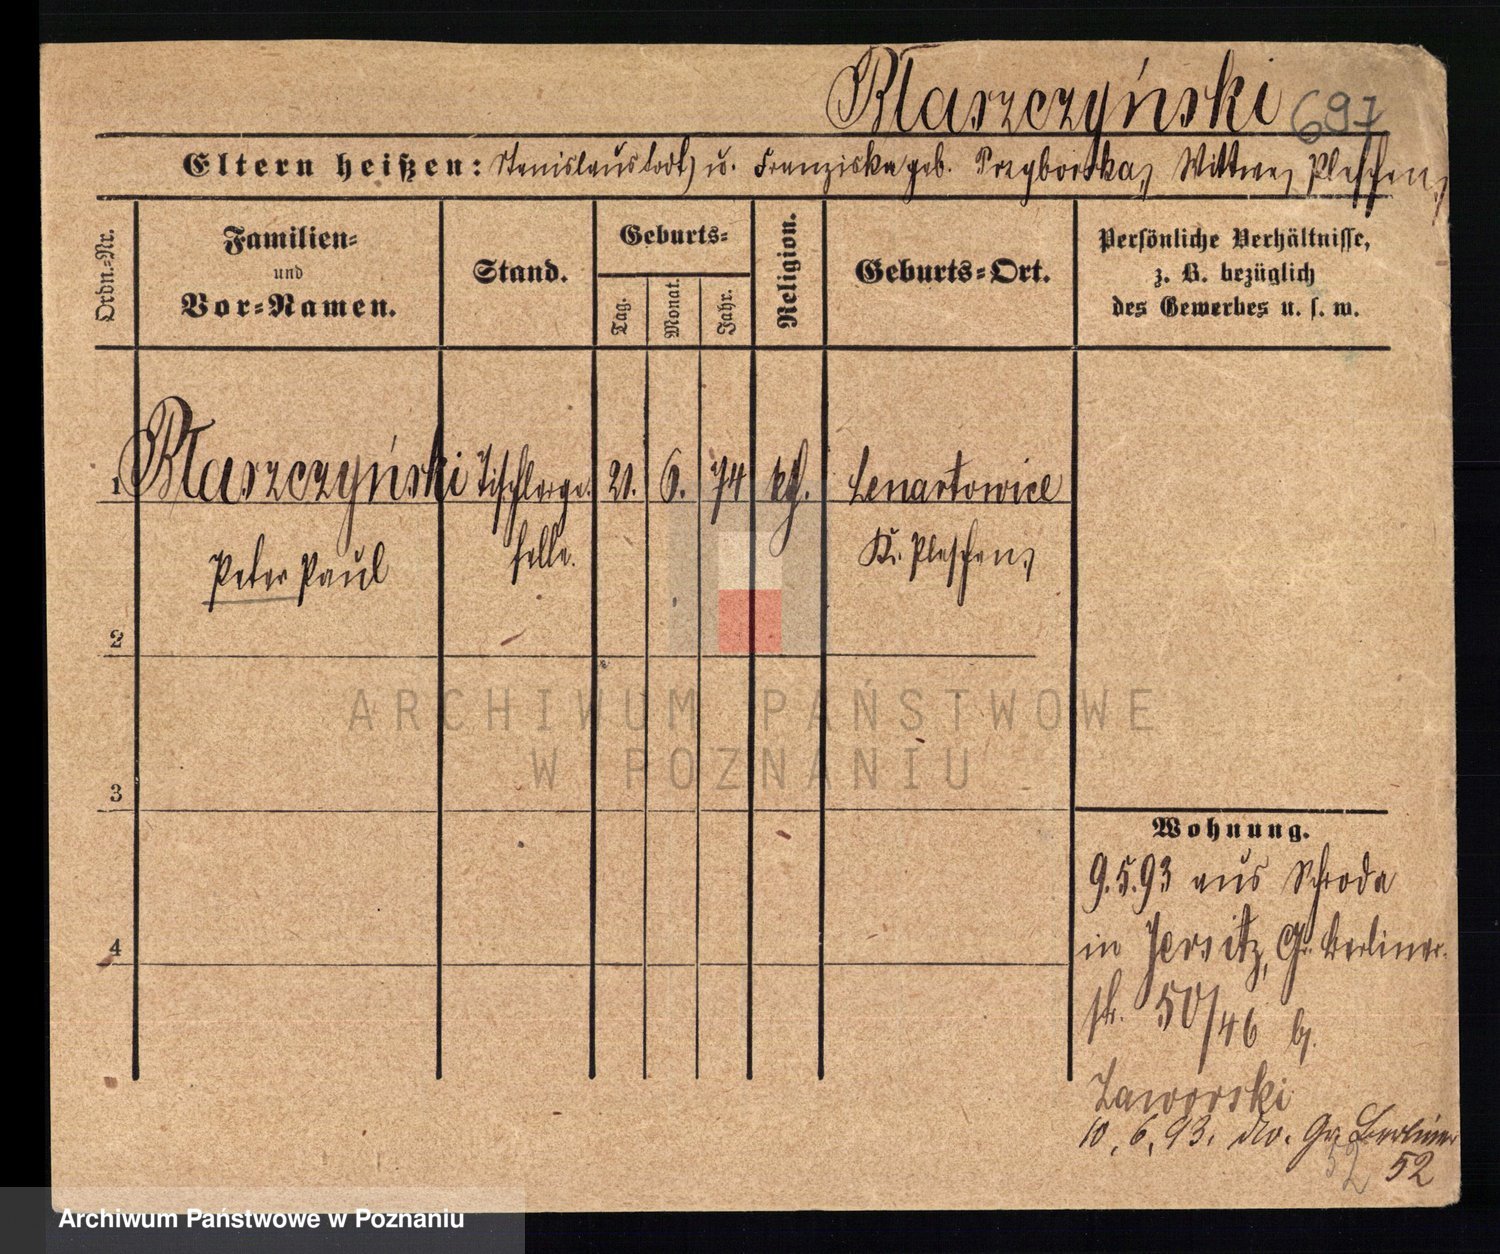 Błaszczyński 697
Eltern heißen: Stanislaus (todt) u. Franziska geb. Przyborska, Wittwe, Pleschen,
Ordn.-Nr.
Familien-
und
Vor-Namen.
Stand.
Geburts-
Tag.
Monat.
Jahr.
Religion.
Geburts-Ort.
Persönliche Verhältnisse,
z. B. bezüglich
des Gewerbes u. s. w.
1 Błaszczyński Tischlerge- 21. 6. 74 kth. Lenartowice
Peter Paul selle. Kr. Pleschen,
2
3
4
ARCHIWUM PAŃSTWOWE
W POZNANIU
Wohnung.
9.5.93 aus Schroda
in Jersitz, Gr. Berliner-
str. 50/46 b.
Jaworski
10.6.93. do. Gr. Berliner
52 52
Archiwum Państwowe w Poznaniu